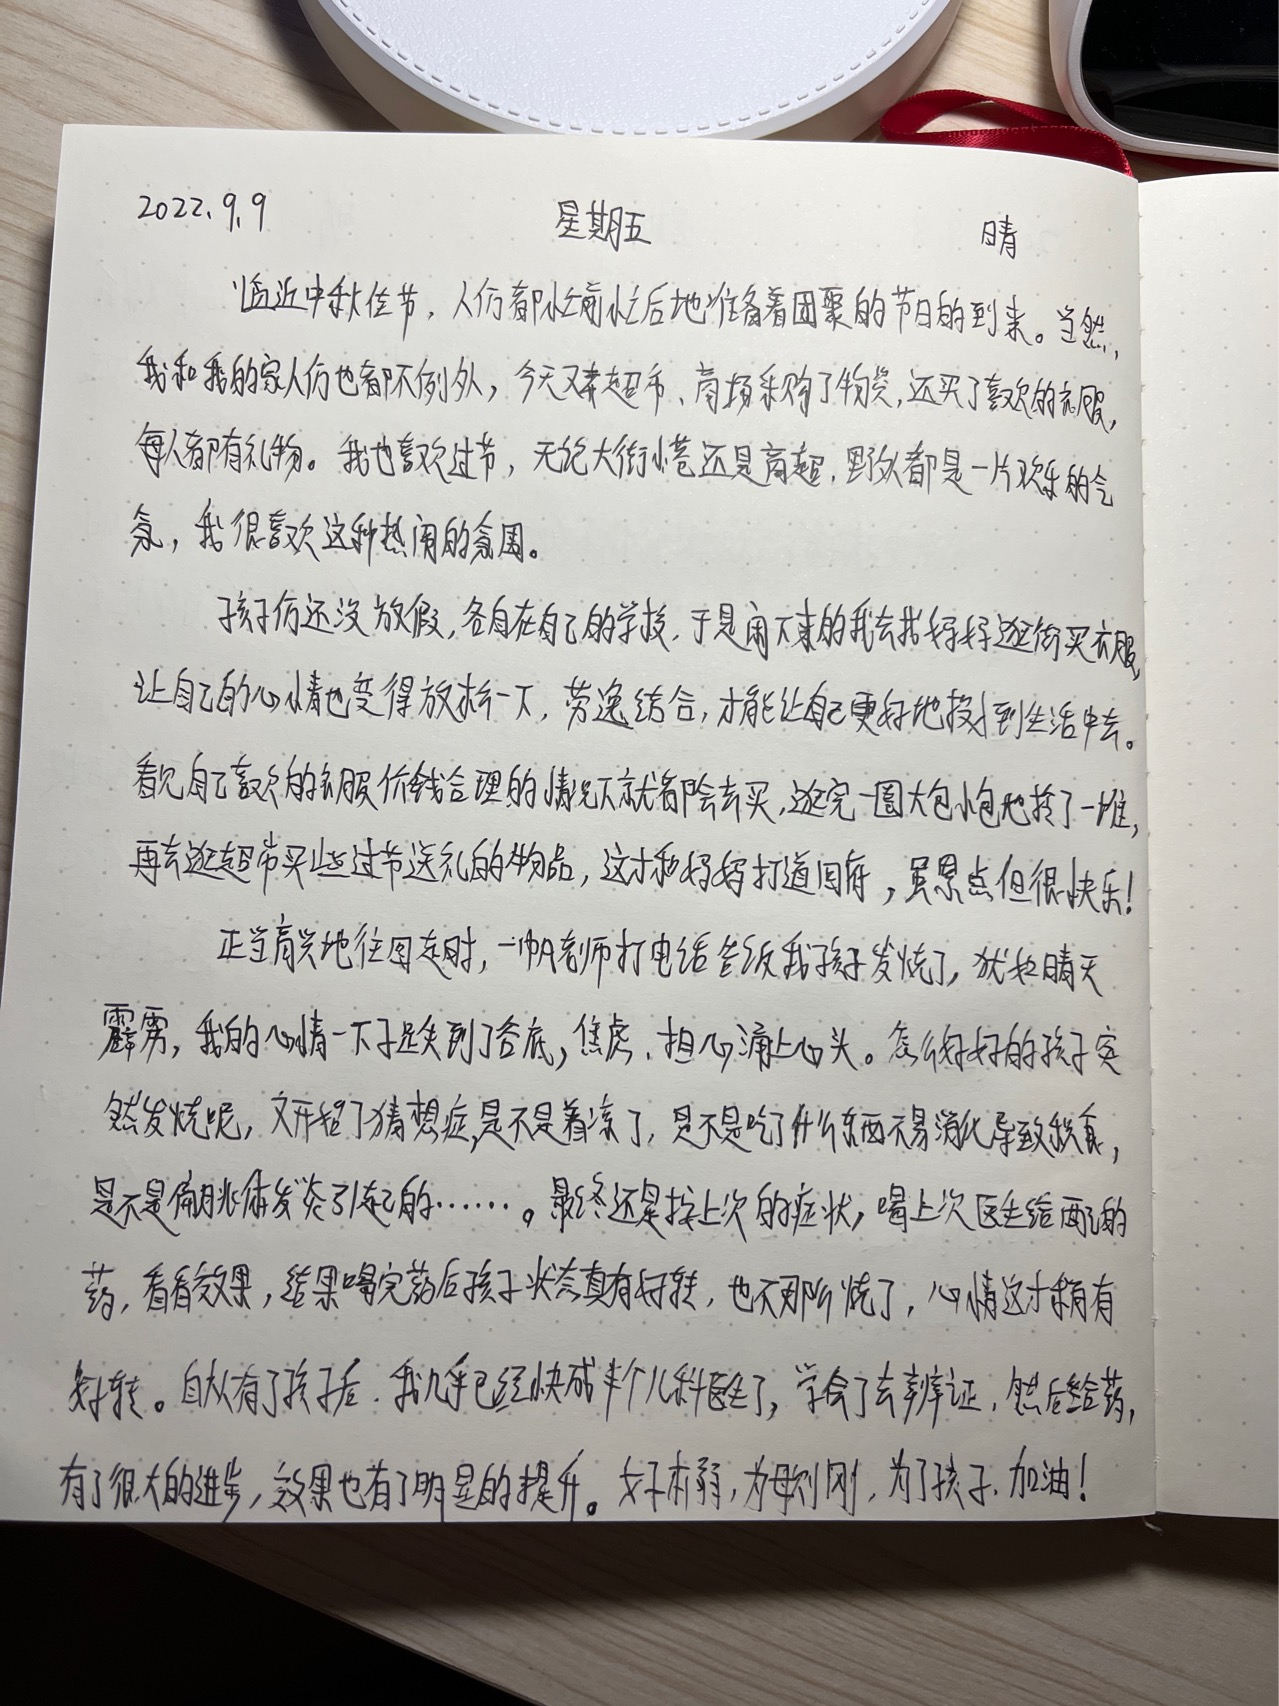 2022.9.9 星期五 晴
临近中秋佳节，人们都忙前忙后地准备着团聚的节日的到来。当然，
我和我的家人们也都不例外，今天又来超市、商场采购了物资，还买了喜欢的衣服，
每人都有礼物。我也喜欢过节，无论大街小巷还是商超，野外都是一片欢乐的气
氛，我很喜欢这种热闹的氛围。
孩子们还没放假，各自在自己的学校，于是闲下来的我去找好好逛街买衣服，
让自己的心情也变得放松一下，劳逸结合，才能让自己更好地投身到生活中去。
看见自己喜欢的衣服价钱合理的情况下就都会去买，逛完一圈大包小包地拎了一堆，
再去逛超市买些过节送礼的物品，这才和妈妈打道回府，虽累点但很快乐！
正当高兴地往回走时，一帆老师打电话告诉我孩子发烧了，犹如晴天
霹雳，我的心情一下子跌到了谷底，焦虑、担心涌上心头。怎么好好的孩子突
然发烧呢，又开始了猜想症，是不是着凉了，是不是吃了什么东西不易消化导致积食，
是不是扁桃体发炎引起的……。最终还是按上次的症状，喝上次医生给配的
药，看看效果，结果喝完药后孩子状态真有好转，也不那么烧了，心情这才稍有
好转。自从有了孩子后，我几乎已经快成半个儿科医生了，学会了去辨证，然后给药，
有了很大的进步，效果也有了明显的提升。女子本弱，为母则刚，为了孩子，加油！